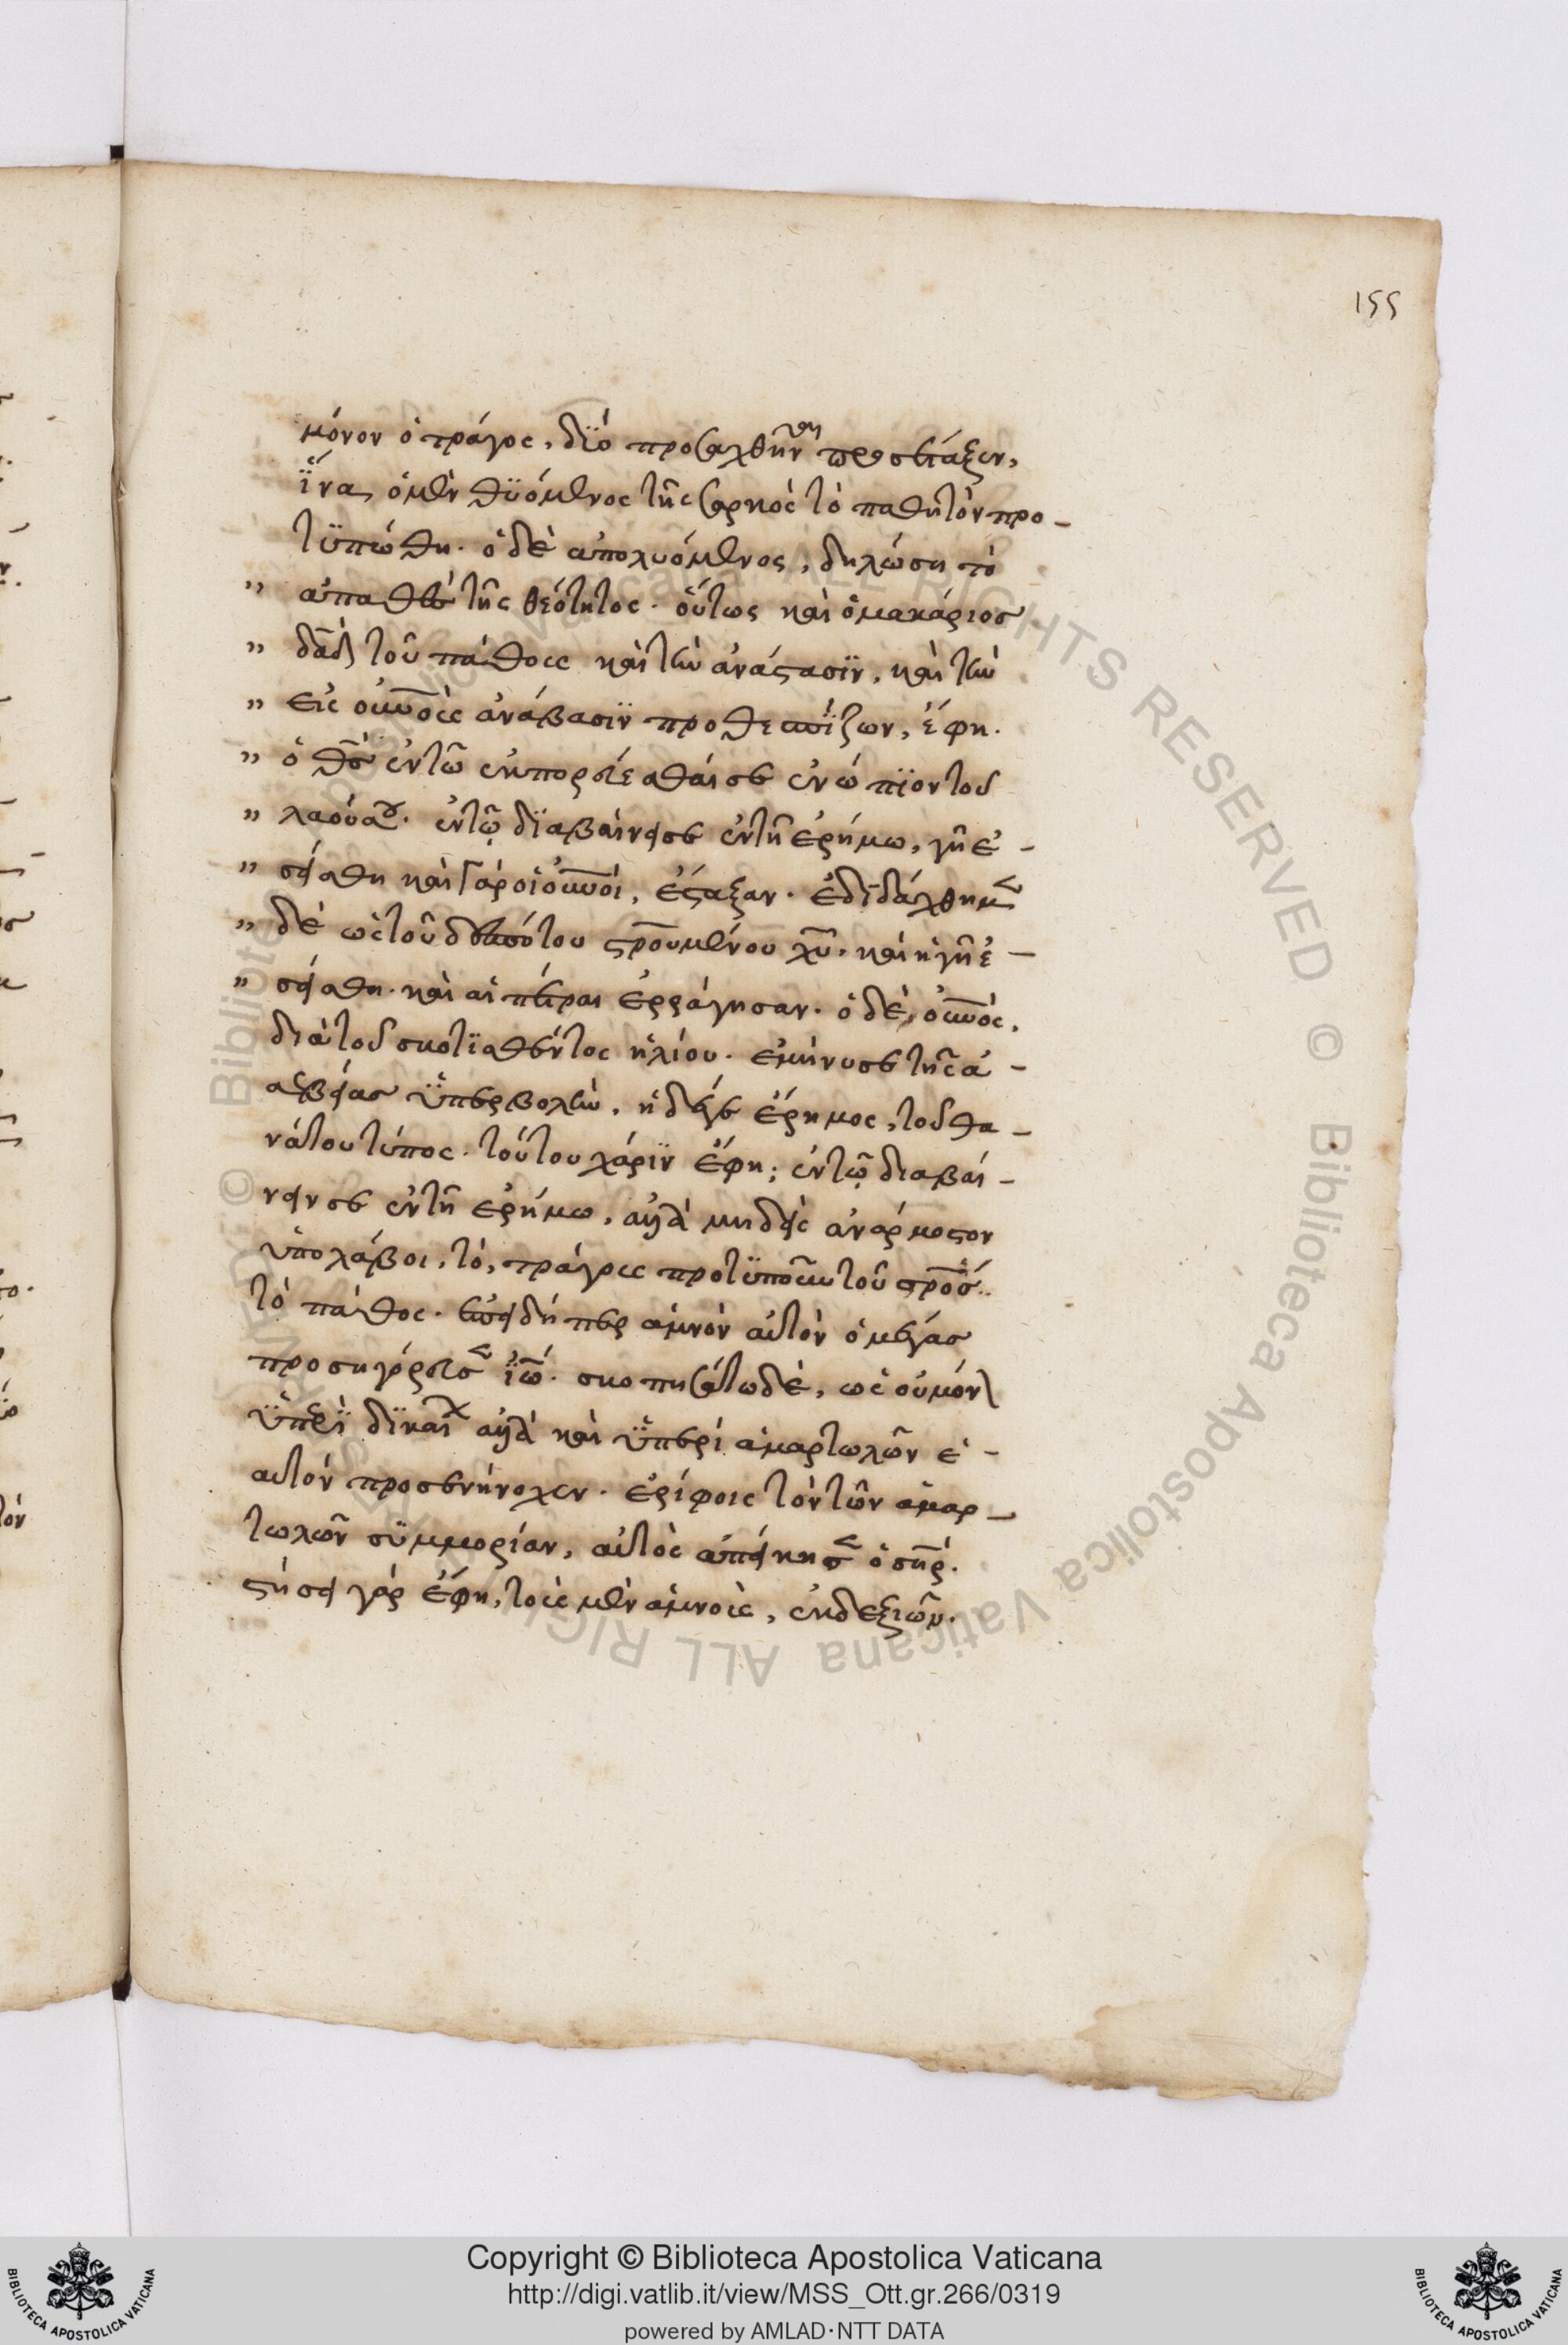 155
μόνον ὁ τράγος, δϊό προσαχθῆναι προσέταξεν,
ἵνα, ὁ μὲν θϋόμενος τῆς σαρκὸς τὸ παθητὸν προ-
τϋπώθη. ὁ δὲ ἀπολυόμενος, δηλώση τὸ
" ἀπαθὲς τῆς θεότητος. οὕτως καὶ ὁ μακάριος
" δᾱδ τοῦ πάθους καὶ τὴν ἀνάστασϊν, καὶ τὴν
" εἰς οὐνοὺς ἀνάβασϊν προθεσπίζων, ἔφη.
" ὁ θς ἐν τῶ ἐκπορεύεσθαί σε ἐνώπϊον τοῦ
" λαοῦ σου. ἐν τῷ δϊαβαίνειν σε ἐν τῆ ἐρήμω, γῆ ἐ-
" σείσθη καὶ γὰρ οἱ οὐνοὶ, ἔσταξαν. ἐδιδάχθημεν
" δὲ ὡς τοῦ δεσπότου στρουμένου χυ. καὶ ἡ γῆ ἐ-
" σείσθη. καὶ αἱ πέτραι ἐρράγησαν. ὁ δὲ, οὐνὸς,
διὰ τοῦ σκοτϊσθέντος ἡλίου. ἐμήνυσε τῆς ἀ-
σεβείας ὑπερβολὴν, ἡ δέ γε ἔρημος, τοῦ θα-
νάτου τύπος. τούτου χάρϊν ἔφη; ἐν τῷ διαβαί-
νειν σε ἐν τῆ ἐρήμω, ἀλλὰ μηδεὶς ἀνάρμοστον
ὑπολάβοι, τὸ, τράγους προτϋποῦν τοῦ σρος
τὸ πάθος. ἐπειδήπερ ἀμνὸν αὐτὸν ὁ μέγας
προσηγόρευσεν ϊω. σκοπησάτω δὲ, ὡς οὐ μόνον
ὑπὲρ δϊκαίων ἀλλὰ καὶ ὑπὲρ ἁμαρτωλῶν ἑ-
αυτὸν προσενήνοχεν. ἐρίφοις τὸν τῶν ἁμαρ-
τωλῶν σϋμμορίαν, αὐτὸς ἀπείκησεν ὁ σηρ.
στήσει γὰρ ἔφη, τοὺς μὲν ἀμνοὺς, ἐκ δεξιῶν.
Copyright © Biblioteca Apostolica Vaticana
http://digi.vatlib.it/view/MSS_Ott.gr.266/0319
powered by AMLAD·NTT DATA